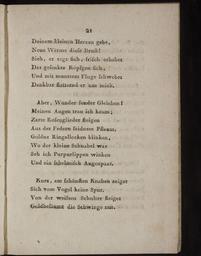 21
Deinem kleinen Herzen geht,
Neue Wärme diese Brust!
Sieh, er regt sich, frisch erhebet
Das gesenkte Köpfgen sich,
Und mit munterm Fluge schwebet
Dankbar flatternd er um mich.
Aber, Wunder sonder Gleichen!
Meinen Augen trau ich kaum;
Zarte Rosenglieder steigen
Aus der Federn seidnem Pflaum,
Goldne Ringellocken blinken,
Wo der kleine Schnabel war
Seh ich Purpurlippen winken
Und ein schelmisch Augenpaar.
Kurz, am schönsten Knaben zeiget
Sich vom Vogel keine Spur,
Von der weißen Schulter steiget
Goldbesäumt die Schwinge nur.